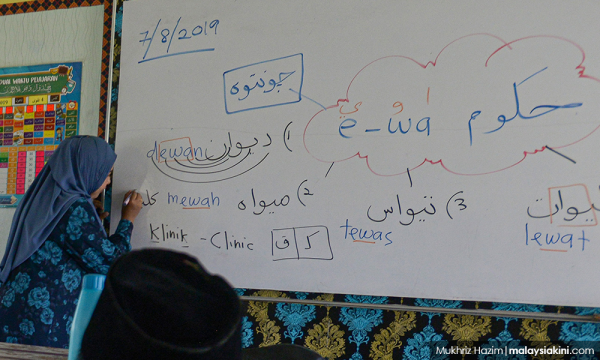 DUAL WAKTU PELAJARAN
7/8/2019
چونتوه
ا و ي
حکوم e-wa
1) ديوان dewan
2) ميواه mewah
کل
3) تيواس
tewas
ليوات
lewat
Klinik - Clinic
ک ق
Mukhriz Hazim | malaysiakini.com